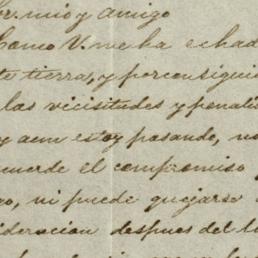 Sr. mio y amigo
Como V. me ha echad
te tierra, y por consigui
las vicisitudes y penali
y aun estoy pasando, no
cuerde el compromiso
go, ni puede quejarse
ideracion despues del t